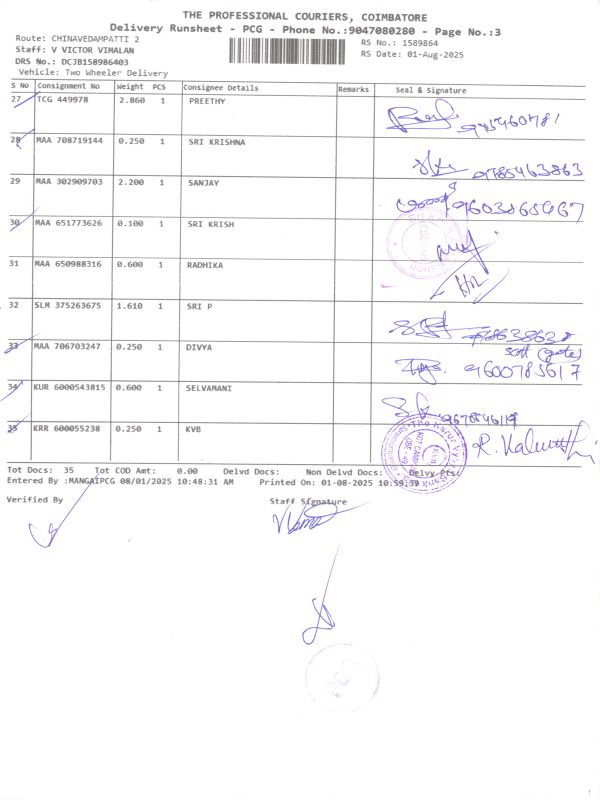 THE PROFESSIONAL COURIERS, COIMBATORE
Delivery Runsheet - PCG - Phone No.:9047080280 - Page No.:3
Route: CHINAVEDAMPATTI 2
RS No.: 1589864
Staff: V VICTOR VIMALAN
RS Date: 01-Aug-2025
DRS No.: DCJB158986403
Vehicle: Two Wheeler Delivery
S No Consignment No Weight PCS Consignee Details Remarks Seal & Signature
27 TCG 449978 2.860 1 PREETHY
28 MAA 708719144 0.250 1 SRI KRISHNA
9785463863
29 MAA 302909703 2.200 1 SANJAY
30 MAA 651773626 0.100 1 SRI KRISH
31 MAA 650988316 0.600 1 RADHIKA
32 SLM 375263675 1.610 1 SRI P
33 MAA 706703247 0.250 1 DIVYA
9600785617
34 KUR 6000543815 0.600 1 SELVAMANI
35 KRR 600055238 0.250 1 KVB
Tot Docs: 35 Tot COD Amt: 0.00 Delvd Docs: Non Delvd Docs: Delvy Pts:
Entered By :MANGAIPCG 08/01/2025 10:48:31 AM Printed On: 01-08-2025 10:59:39
Verified By Staff Signature